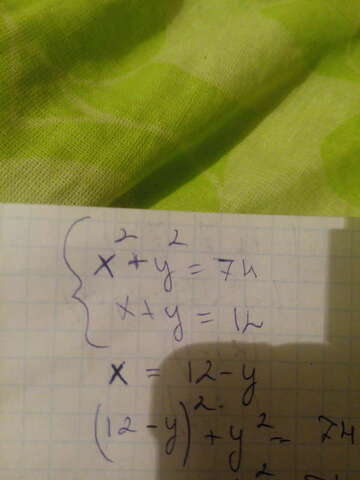 x² + y² = 74
x + y = 12
x = 12 - y
(12 - y)² + y² = 74